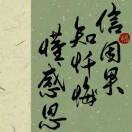 信因果
知忏悔
懂感恩